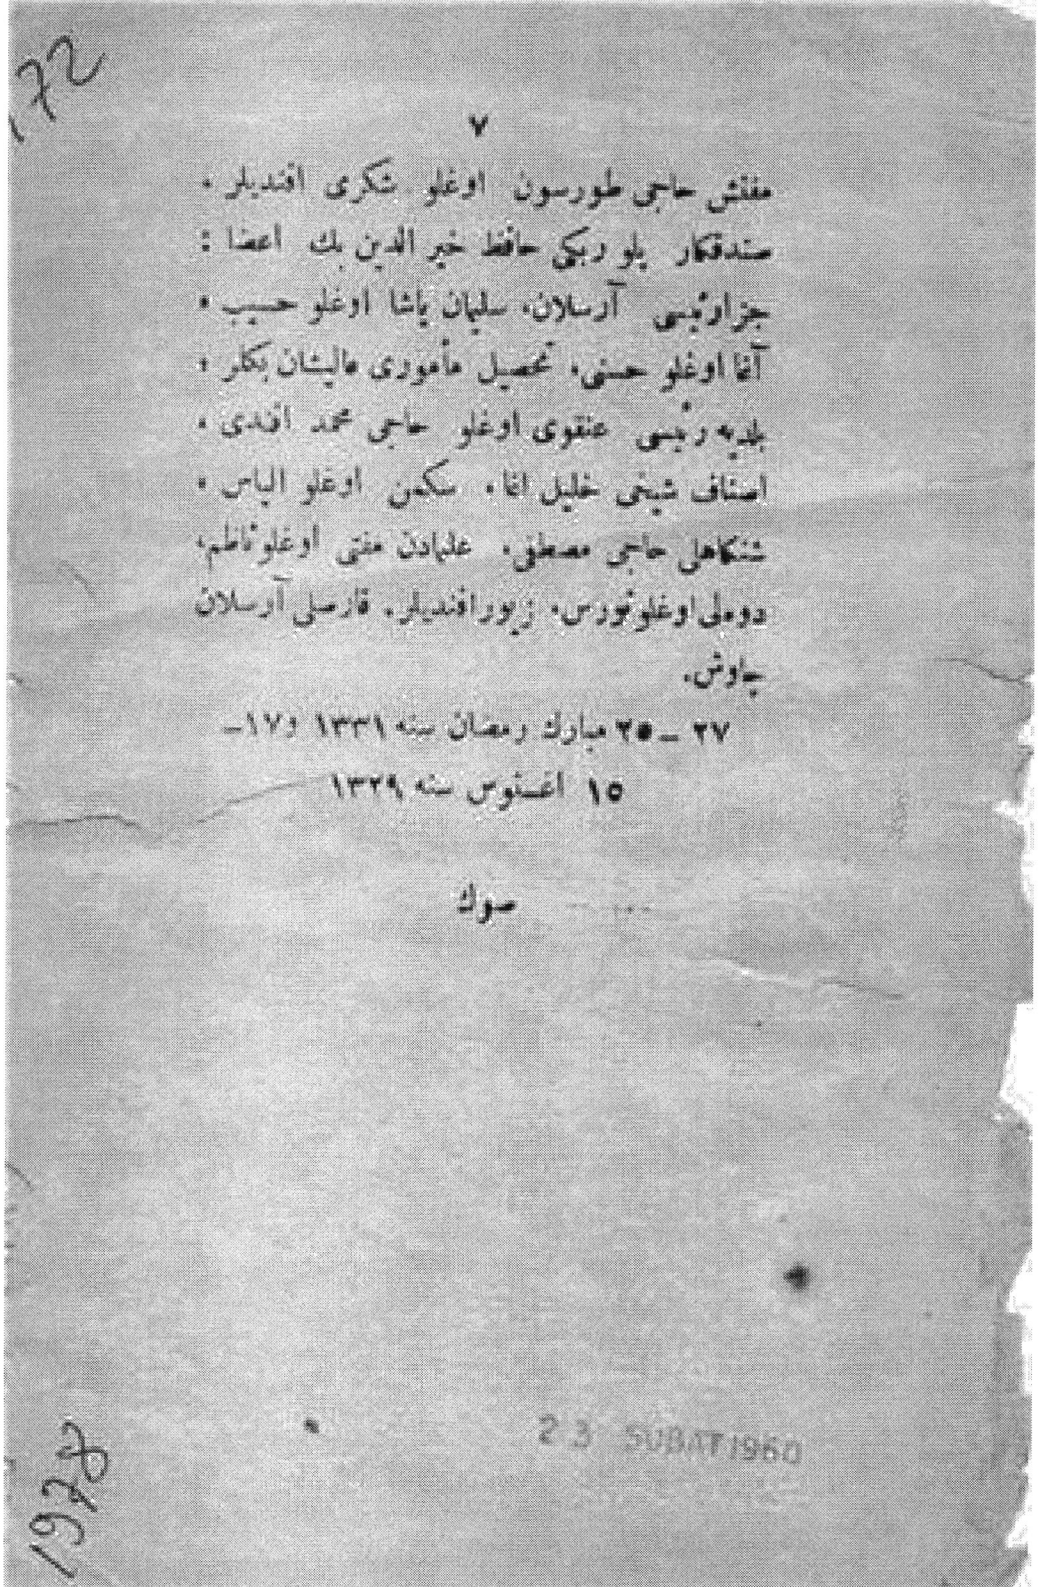 172
٧
مفتش حاجی طورسون اوغلو شكری افندیلر ،
صندقكار یلو ربكی حافظ خیر الدین بك اعضا :
جزا رئیسی آرسلان، سلیمان پاشا اوغلو حسیب ،
آغا اوغلو حسنی، تحصیل مأموری عالیشان بكلر ،
بلدیه رئیسی عنقوی اوغلو حاجی محمد افندی ،
اصناف شیخی خلیل اغا، سكمن اوغلو الیاس ،
شنكاهلی حاجی مصطفی، علمادن مفتی اوغلو ناظم،
دوملی اوغلو نورس، زیور افندیلر. قارصلی آرسلان
چاوش.
٢٧ – ٢٥ مبارك رمضان سنه ١٣٣١ و١٧–
١٥ اغستوس سنه ١٣٢٩
صوك
23 SUBAT 1960
1978